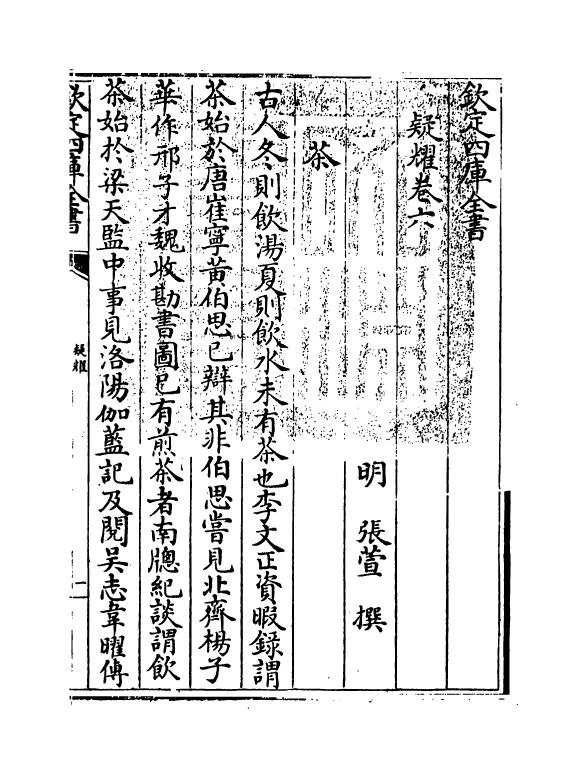 欽定四庫全書
疑耀卷六
明 張萱 撰
茶
古人冬則飲湯夏則飲水未有茶也李文正資暇錄謂
茶始於唐崔寧黄伯思已辯其非伯思嘗見北齊楊子
華作邢子才魏收勘書圖已有煎茶者南牕紀談謂飲
茶始於梁天監中事見洛陽伽藍記及閱吳志韋曜傳
欽定四庫全書
疑耀